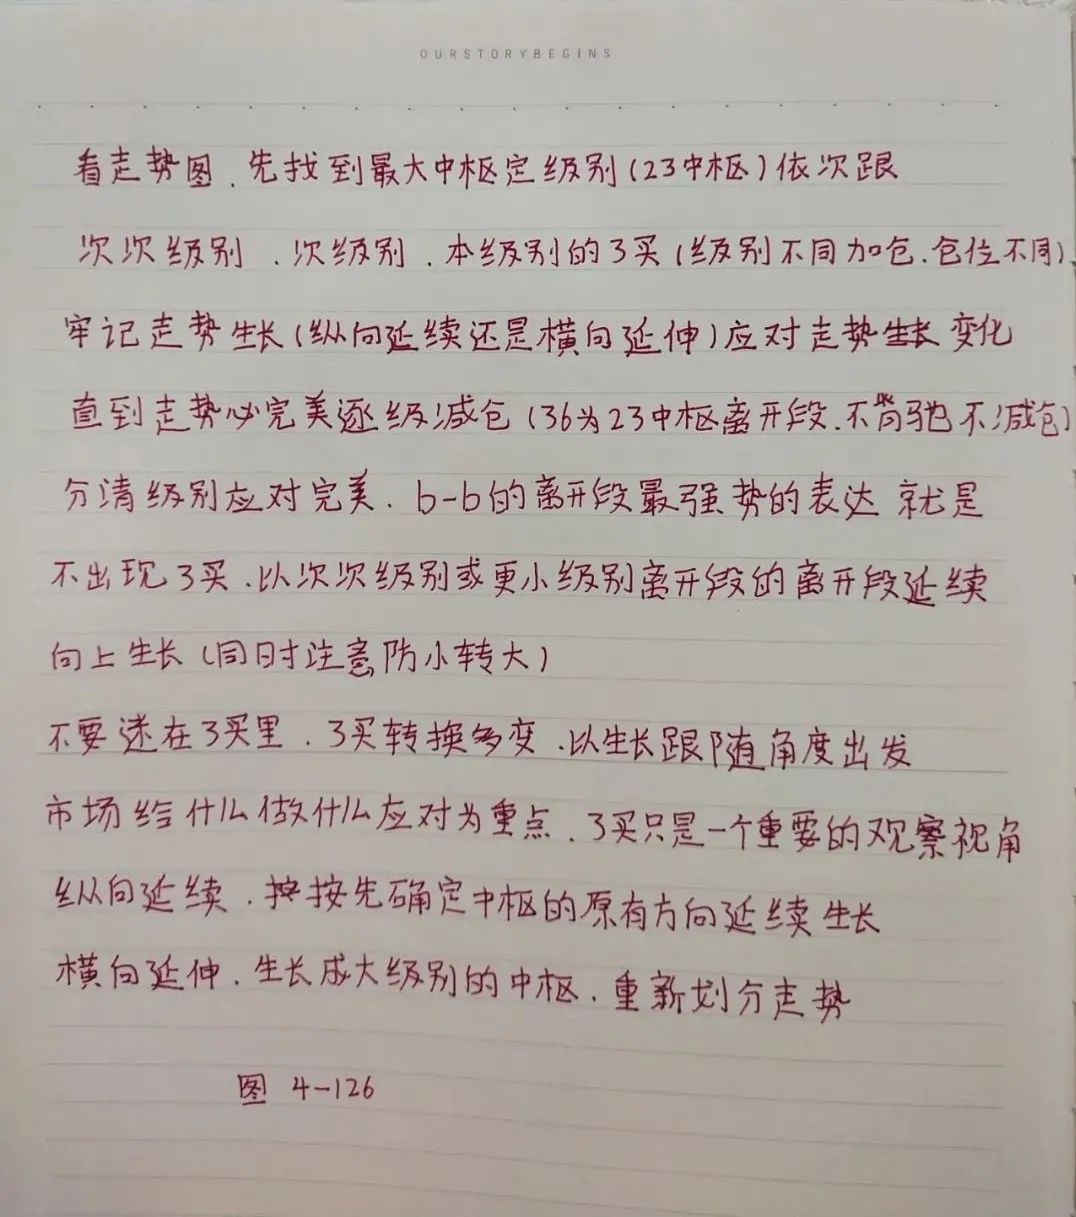 OURSTORYBEGINS
看走势图、先找到最大中枢定级别(23中枢)依次跟
次次级别、次级别、本级别的3买(级别不同加仓、仓位不同)
牢记走势生长(纵向延续还是横向延伸)应对走势生长变化
直到走势必完美逐级减仓(36为23中枢离开段、不背驰不减仓)
分清级别应对完美、b-b的离开段最强势的表达就是
不出现3买、以次次级别或更小级别离开段的离开段延续
向上生长(同时注意防小转大)
不要迷在3买里、3买转换多变、以生长跟随角度出发
市场给什么做什么应对为重点、3买只是一个重要的观察视角
纵向延续、按先确定中枢的原有方向延续生长
横向延伸、生长成大级别的中枢、重新划分走势
图 4-126